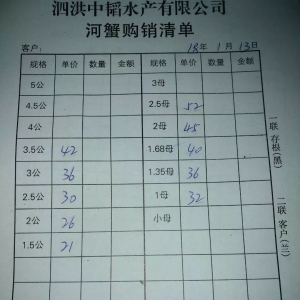 泗洪中韬水产有限公司
河蟹购销清单
客户: 18年 1月 13日
规格 单价 数量 金额 规格 单价 数量 金额
5公 3母
4.5公 2.5母 52
4公 2母 45
3.5公 42 1.68母 40
3公 36 1.35母 36
2.5公 30 1母 32
2公 26 小母
1.5公 21
一联 存根(黑)
二联 客户(兰)